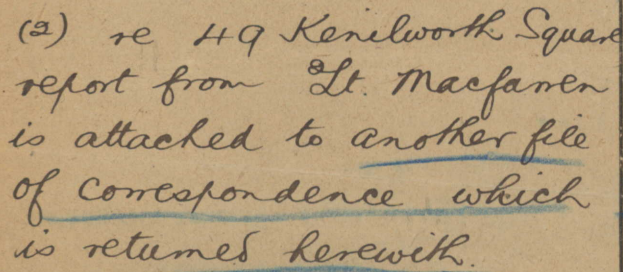 (2) re 49 Kenilworth Square
report from 2Lt. Macfarren
is attached to another file
of correspondence which
is returned herewith.